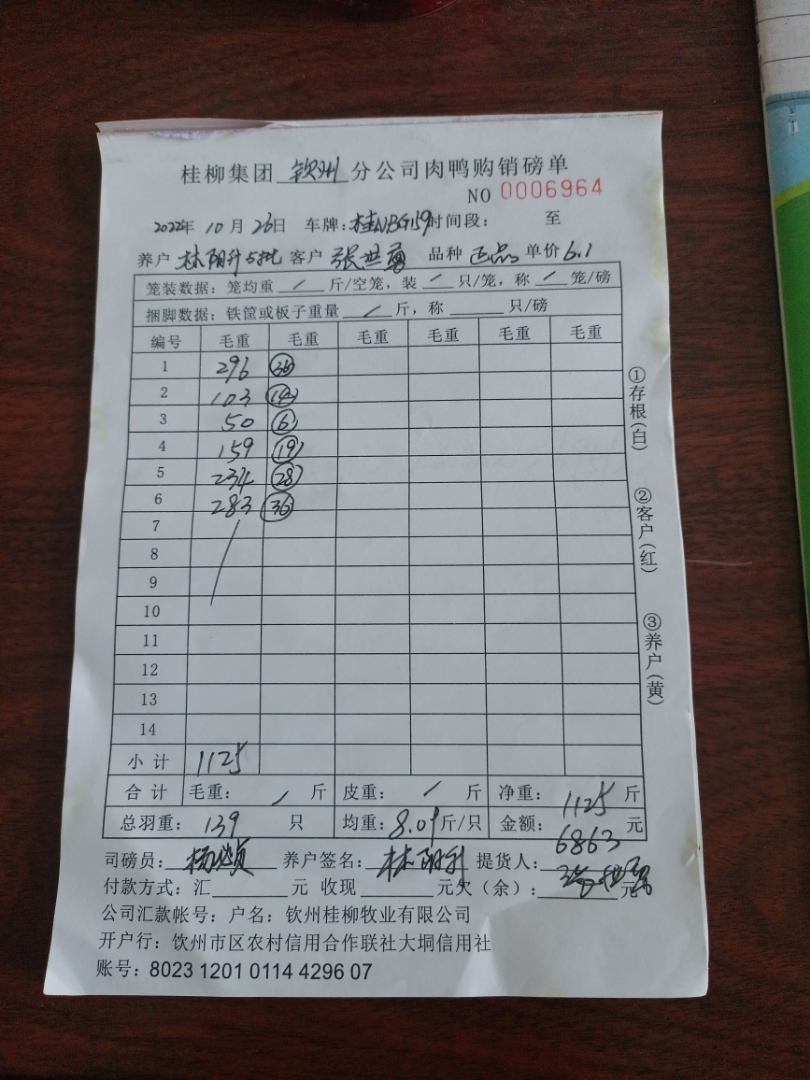 桂柳集团 钦州 分公司肉鸭购销磅单
NO 0006964
2022年 10月 26日 车牌：桂NBG159 时间段： 至
养户 林阳升5批 客户 张世勇 品种 正品 单价 6.1
笼装数据：笼均重 / 斤/空笼，装 / 只/笼，称 / 笼/磅
捆脚数据：铁筐或板子重量 / 斤，称 只/磅
编号 毛重 毛重 毛重 毛重 毛重 毛重
1 296
2 103 14
3 50 6
4 159 19
5 234 28
6 283 36
7
8
9
10
11
12
13
14
小计 1125
合计 毛重： / 斤 皮重： / 斤 净重： 1125 斤
总羽重： 139 只 均重： 8.09 斤/只 金额： 6863 元
司磅员： 养户签名： 林阳升 提货人：
付款方式：汇 元 收现 元欠（余）： 元
公司汇款帐号：户名：钦州桂柳牧业有限公司
开户行：钦州市区农村信用合作联社大垌信用社
账号：8023 1201 0114 4296 07
①存根（白）
②客户（红）
③养户（黄）